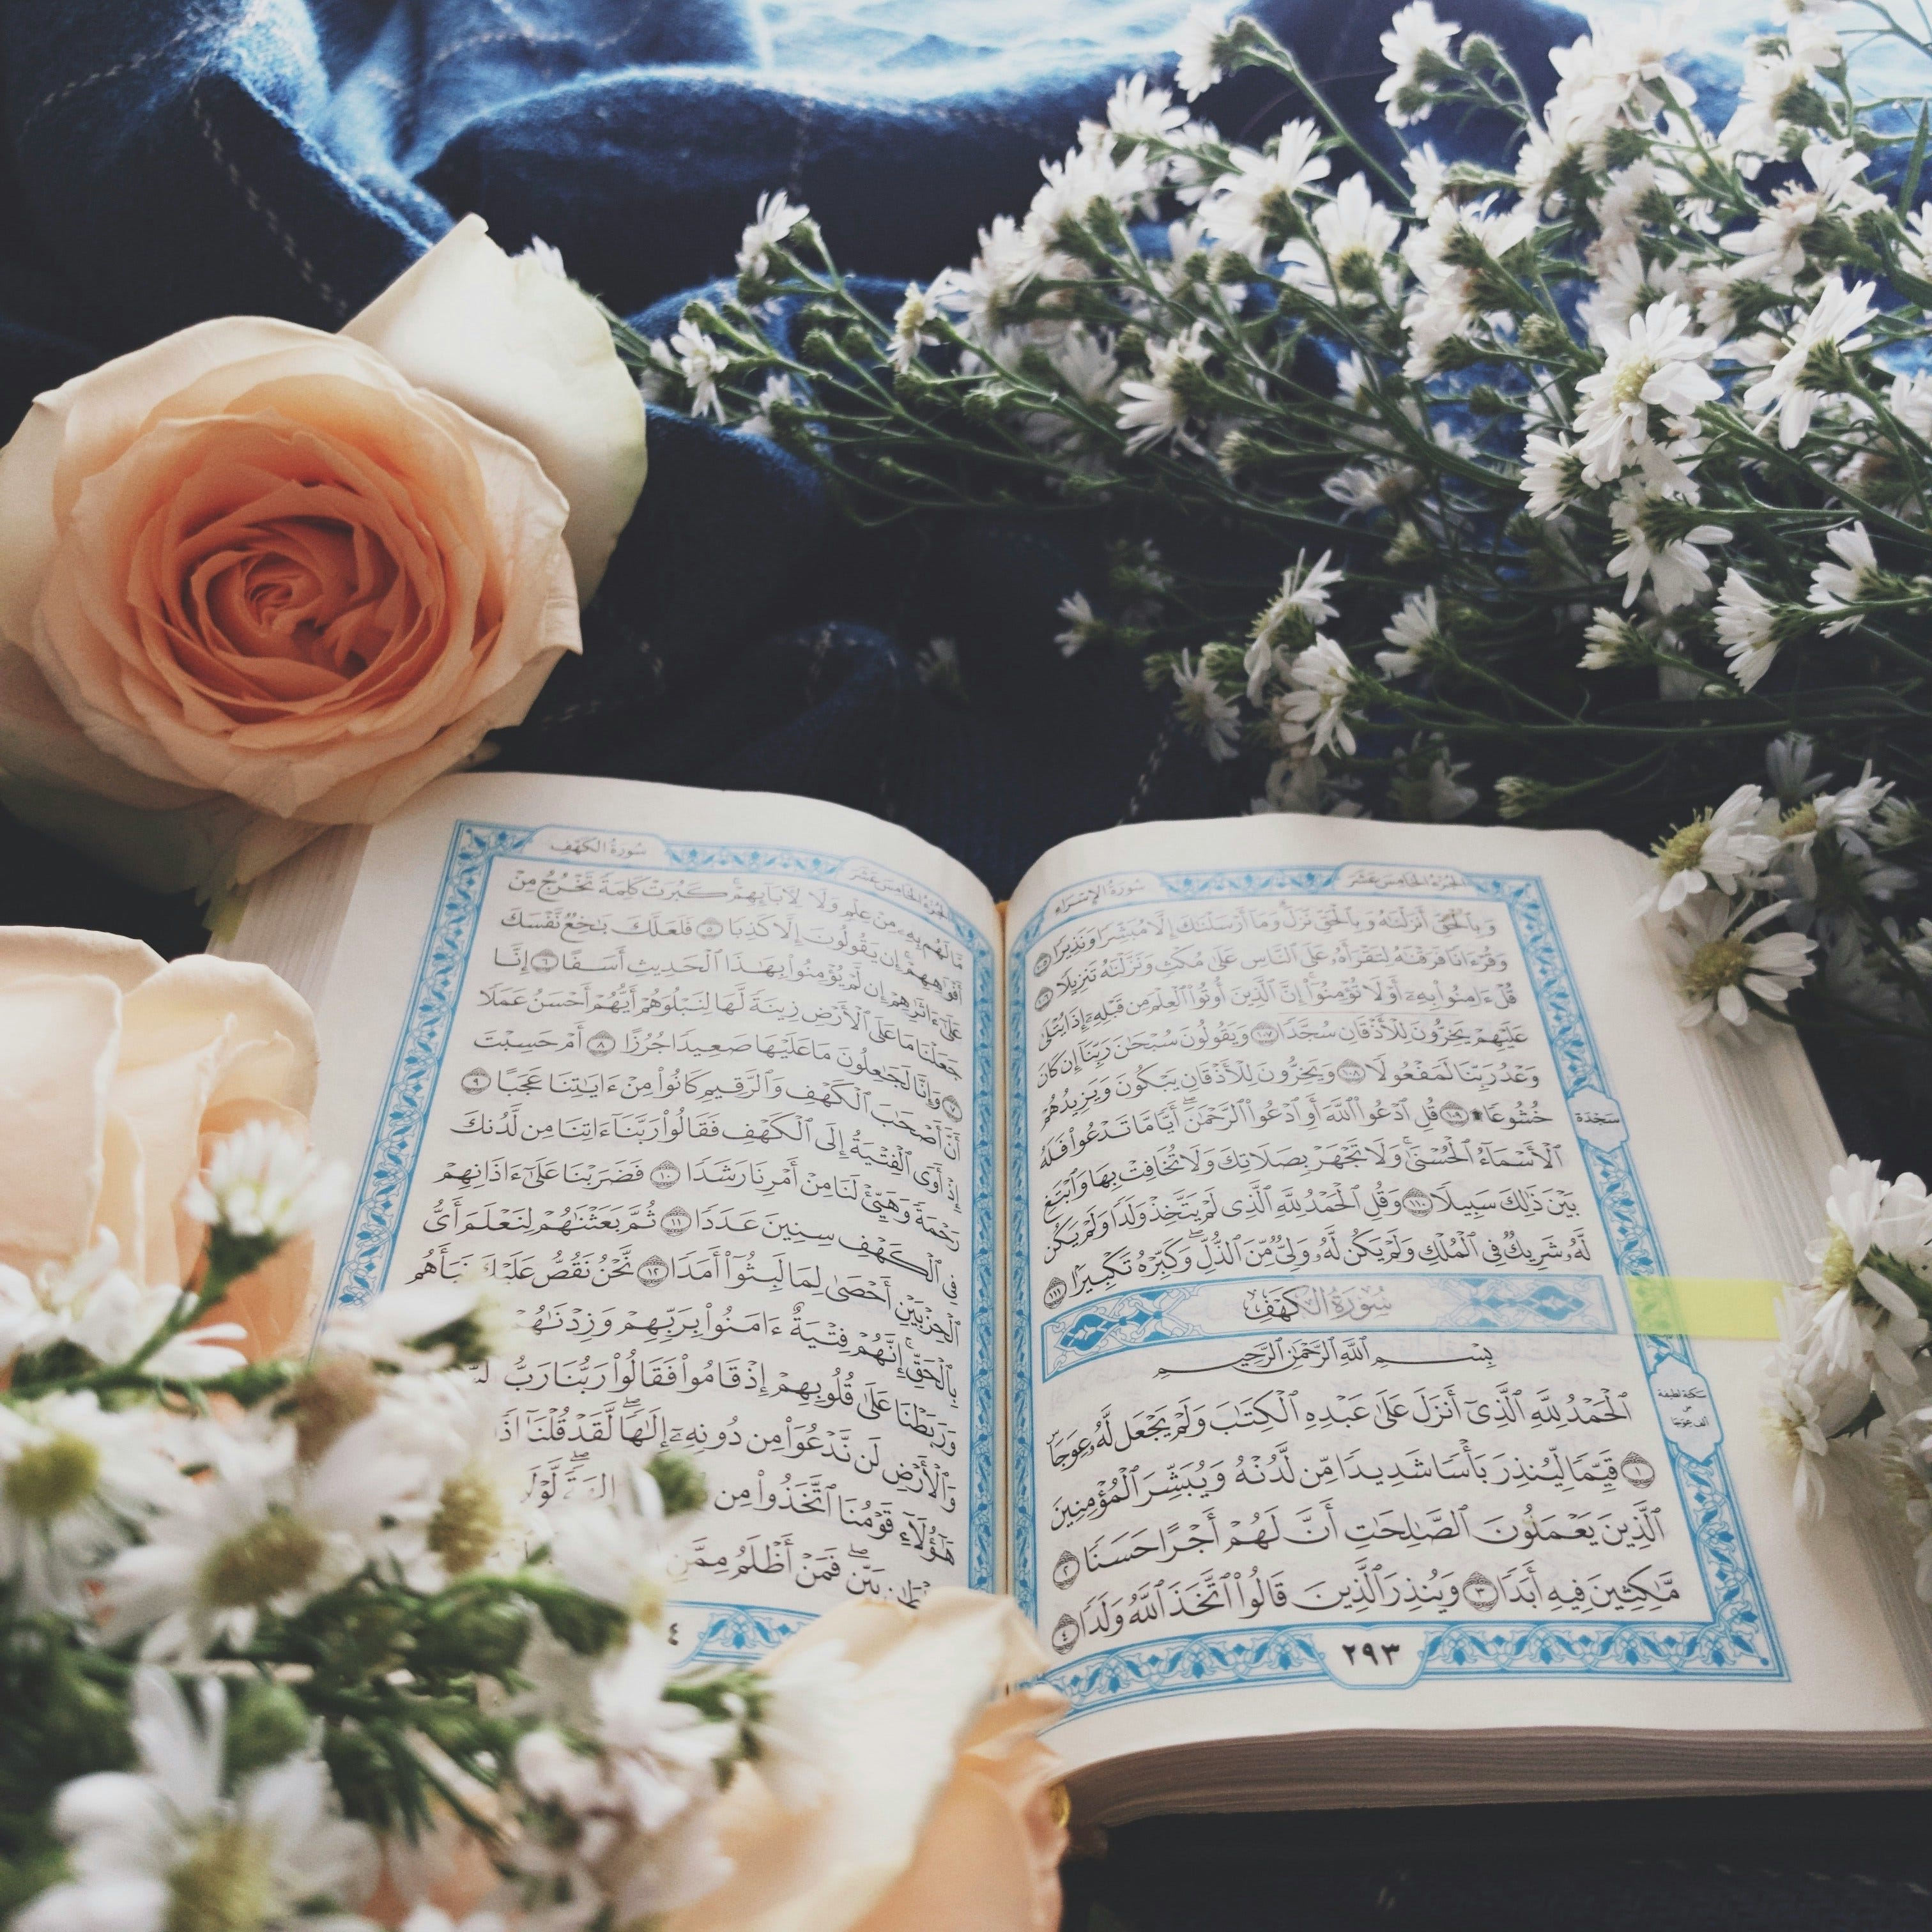 الجزء الخامس عشر
سورة الإسراء
وَبِٱلْحَقِّ أَنزَلْنَٰهُ وَبِٱلْحَقِّ نَزَلَ ۗ وَمَآ أَرْسَلْنَٰكَ إِلَّا مُبَشِّرًا وَنَذِيرًا ١٠٥
وَقُرْءَانًا فَرَقْنَٰهُ لِتَقْرَأَهُۥ عَلَى ٱلنَّاسِ عَلَىٰ مُكْثٍ وَنَزَّلْنَٰهُ تَنزِيلًا ١٠٦
قُلْ ءَامِنُوا۟ بِهِۦٓ أَوْ لَا تُؤْمِنُوٓا۟ ۚ إِنَّ ٱلَّذِينَ أُوتُوا۟ ٱلْعِلْمَ مِن قَبْلِهِۦٓ إِذَا يُتْلَىٰ
عَلَيْهِمْ يَخِرُّونَ لِلْأَذْقَانِ سُجَّدًا ١٠٧ وَيَقُولُونَ سُبْحَٰنَ رَبِّنَآ إِن كَانَ
وَعْدُ رَبِّنَا لَمَفْعُولًا ١٠٨ وَيَخِرُّونَ لِلْأَذْقَانِ يَبْكُونَ وَيَزِيدُهُمْ
خُشُوعًا ۩ ١٠٩ قُلِ ٱدْعُوا۟ ٱللَّهَ أَوِ ٱدْعُوا۟ ٱلرَّحْمَٰنَ ۖ أَيًّا مَّا تَدْعُوا۟ فَلَهُ
سَجْدَة
ٱلْأَسْمَآءُ ٱلْحُسْنَىٰ ۚ وَلَا تَجْهَرْ بِصَلَاتِكَ وَلَا تُخَافِتْ بِهَا وَٱبْتَغِ
بَيْنَ ذَٰلِكَ سَبِيلًا ١١٠ وَقُلِ ٱلْحَمْدُ لِلَّهِ ٱلَّذِى لَمْ يَتَّخِذْ وَلَدًا وَلَمْ يَكُن
لَّهُۥ شَرِيكٌ فِى ٱلْمُلْكِ وَلَمْ يَكُن لَّهُۥ وَلِىٌّ مِّنَ ٱلذُّلِّ ۖ وَكَبِّرْهُ تَكْبِيرًۢا ١١١
سُورَةُ الكَهْفِ
بِسْمِ ٱللَّهِ ٱلرَّحْمَٰنِ ٱلرَّحِيمِ
ٱلْحَمْدُ لِلَّهِ ٱلَّذِىٓ أَنزَلَ عَلَىٰ عَبْدِهِ ٱلْكِتَٰبَ وَلَمْ يَجْعَل لَّهُۥ عِوَجَاۜ
سكتة لطيفة
١ قَيِّمًا لِّيُنذِرَ بَأْسًا شَدِيدًا مِّن لَّدُنْهُ وَيُبَشِّرَ ٱلْمُؤْمِنِينَ
ٱلَّذِينَ يَعْمَلُونَ ٱلصَّٰلِحَٰتِ أَنَّ لَهُمْ أَجْرًا حَسَنًا ٢
مَّٰكِثِينَ فِيهِ أَبَدًا ٣ وَيُنذِرَ ٱلَّذِينَ قَالُوا۟ ٱتَّخَذَ ٱللَّهُ وَلَدًا ٤
٢٩٣
الجزء الخامس عشر
سورة الكهف
مَّا لَهُم بِهِۦ مِنْ عِلْمٍ وَلَا لِـَٔابَآئِهِمْ ۚ كَبُرَتْ كَلِمَةً تَخْرُجُ مِنْ
أَفْوَٰهِهِمْ ۚ إِن يَقُولُونَ إِلَّا كَذِبًا ٥ فَلَعَلَّكَ بَٰخِعٌ نَّفْسَكَ
عَلَىٰٓ ءَاثَٰرِهِمْ إِن لَّمْ يُؤْمِنُوا۟ بِهَٰذَا ٱلْحَدِيثِ أَسَفًا ٦ إِنَّا
جَعَلْنَا مَا عَلَى ٱلْأَرْضِ زِينَةً لَّهَا لِنَبْلُوَهُمْ أَيُّهُمْ أَحْسَنُ عَمَلًا
٧ وَإِنَّا لَجَٰعِلُونَ مَا عَلَيْهَا صَعِيدًا جُرُزًا ٨ أَمْ حَسِبْتَ
أَنَّ أَصْحَٰبَ ٱلْكَهْفِ وَٱلرَّقِيمِ كَانُوا۟ مِنْ ءَايَٰتِنَا عَجَبًا ٩
إِذْ أَوَى ٱلْفِتْيَةُ إِلَى ٱلْكَهْفِ فَقَالُوا۟ رَبَّنَآ ءَاتِنَا مِن لَّدُنكَ
رَحْمَةً وَهَيِّئْ لَنَا مِنْ أَمْرِنَا رَشَدًا ١٠ فَضَرَبْنَا عَلَىٰٓ ءَاذَانِهِمْ
فِى ٱلْكَهْفِ سِنِينَ عَدَدًا ١١ ثُمَّ بَعَثْنَٰهُمْ لِنَعْلَمَ أَىُّ
ٱلْحِزْبَيْنِ أَحْصَىٰ لِمَا لَبِثُوٓا۟ أَمَدًا ١٢ نَّحْنُ نَقُصُّ عَلَيْكَ نَبَأَهُم
بِٱلْحَقِّ ۚ إِنَّهُمْ فِتْيَةٌ ءَامَنُوا۟ بِرَبِّهِمْ وَزِدْنَٰهُمْ
وَرَبَطْنَا عَلَىٰ قُلُوبِهِمْ إِذْ قَامُوا۟ فَقَالُوا۟ رَبُّنَا رَبُّ
وَٱلْأَرْضِ لَن نَّدْعُوَا۟ مِن دُونِهِۦٓ إِلَٰهًا ۖ لَّقَدْ قُلْنَآ
هَٰٓؤُلَآءِ قَوْمُنَا ٱتَّخَذُوا۟ مِن
بَيِّنٍ ۖ فَمَنْ أَظْلَمُ مِمَّنِ